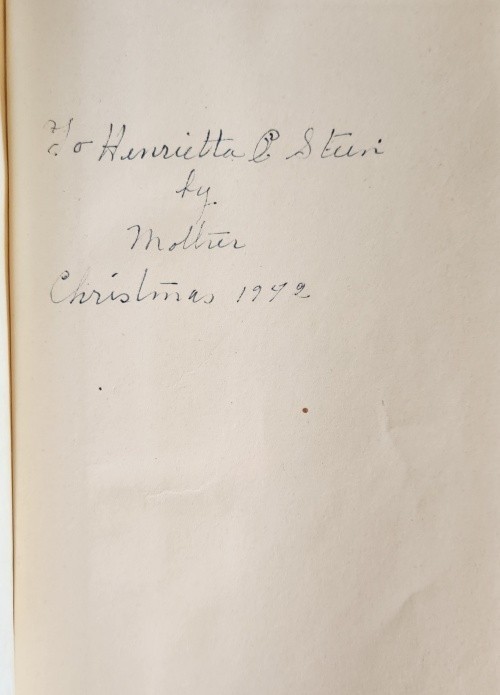 To Henrietta C Stein
by
Mother
Christmas 1942